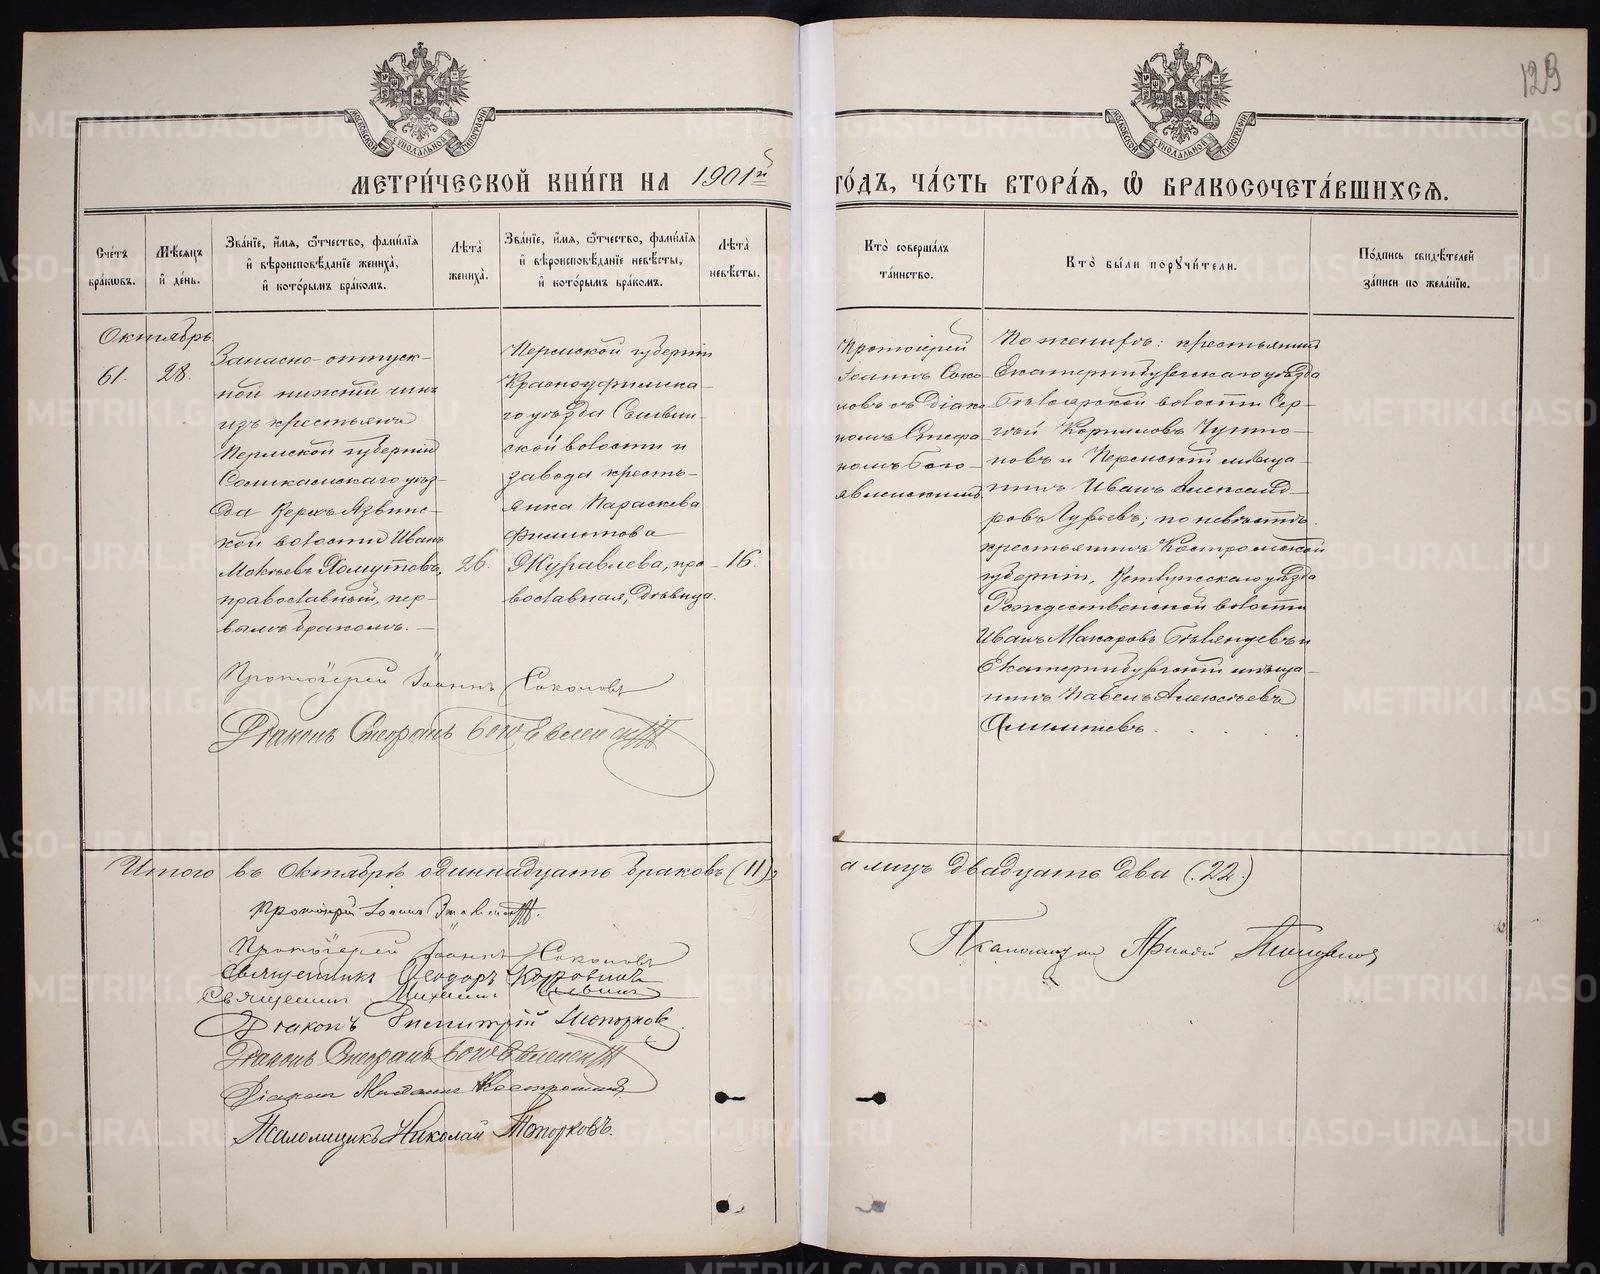 129
МЕТРИ́ЧЕСКОЙ КНИ́ГИ НА 1901й ГО́ДЪ, ЧА́СТЬ ВТОРА́Ѧ, Ѡ҆ БРАКОСОЧЕТА́ВШИХСѦ.
Сче́тъ бра́кѡвъ.
Мѣ́сѧцъ и҆ де́нь.
Зва́нїе, и҆́мѧ, ѻ҆́тчество, фами́лїѧ и҆ вѣроисповѣ́данїе жениха̀, и҆ кото́рымъ бра́комъ.
Лѣта̀ жениха̀.
Зва́нїе, и҆́мѧ, ѻ҆́тчество, фами́лїѧ и҆ вѣроисповѣ́данїе невѣ́сты, и҆ кото́рымъ бра́комъ.
Лѣта̀ невѣ́сты.
Кто̀ соверша́лъ та́инство.
Кто̀ бы́ли порꙋчи́тели.
По́дпись свидѣ́телей за́писи по жела́нїю.
Октябрь
61.
28.
Запасно-отпуск-
ной нижній чинъ
изъ крестьянъ
Пермской губерніи
Соликамскаго уѣз-
да Верхъ-Язвинс-
кой волости Иванъ
Мокѣевъ Хомутовъ,
православный, пер-
вымъ бракомъ. —
26.
Пермской губерніи
Красноуфимска-
го уѣзда Сылвин-
ской волости и
завода кресть-
янка Параскева
Филиппова
Журавлева, пра-
вославная, дѣвица.
16.
Протоіерей
Іоаннъ Соко-
ловъ съ діако-
номъ Стефа-
номъ Бого-
явленскимъ
По женихѣ: крестьянинъ
Екатеринбургскаго уѣзда
Бѣлоярской волости Сер-
гѣй Корниловъ
новъ и Пермскій мѣща-
нинъ Иванъ Александ-
ровъ Гурьевъ; по невѣстѣ:
крестьянинъ Костромской
губерніи, Ветлужскаго уѣзда
Рождественской волости
Иванъ Макаровъ Бѣлянцевъ и
Екатеринбургскій мѣща-
нинъ Павелъ Алексѣевъ
Протоіерей Іоаннъ Соколовъ
Діаконъ Стефанъ Богоявленскій
Итого въ Октябрѣ одиннадцать браковъ (11), а лицъ двадцать два (22)
Протоіерей Іоаннъ
Протоіерей Іоаннъ Соколовъ
Священникъ Ѳеодоръ Коровинъ
Священникъ Михаилъ
Діаконъ Димитрій Топорковъ
Діаконъ Стефанъ Богоявленскій
Діаконъ
Псаломщикъ Николай Топорковъ.
Псаломщикъ
METRIKI.GASO-URAL.RU